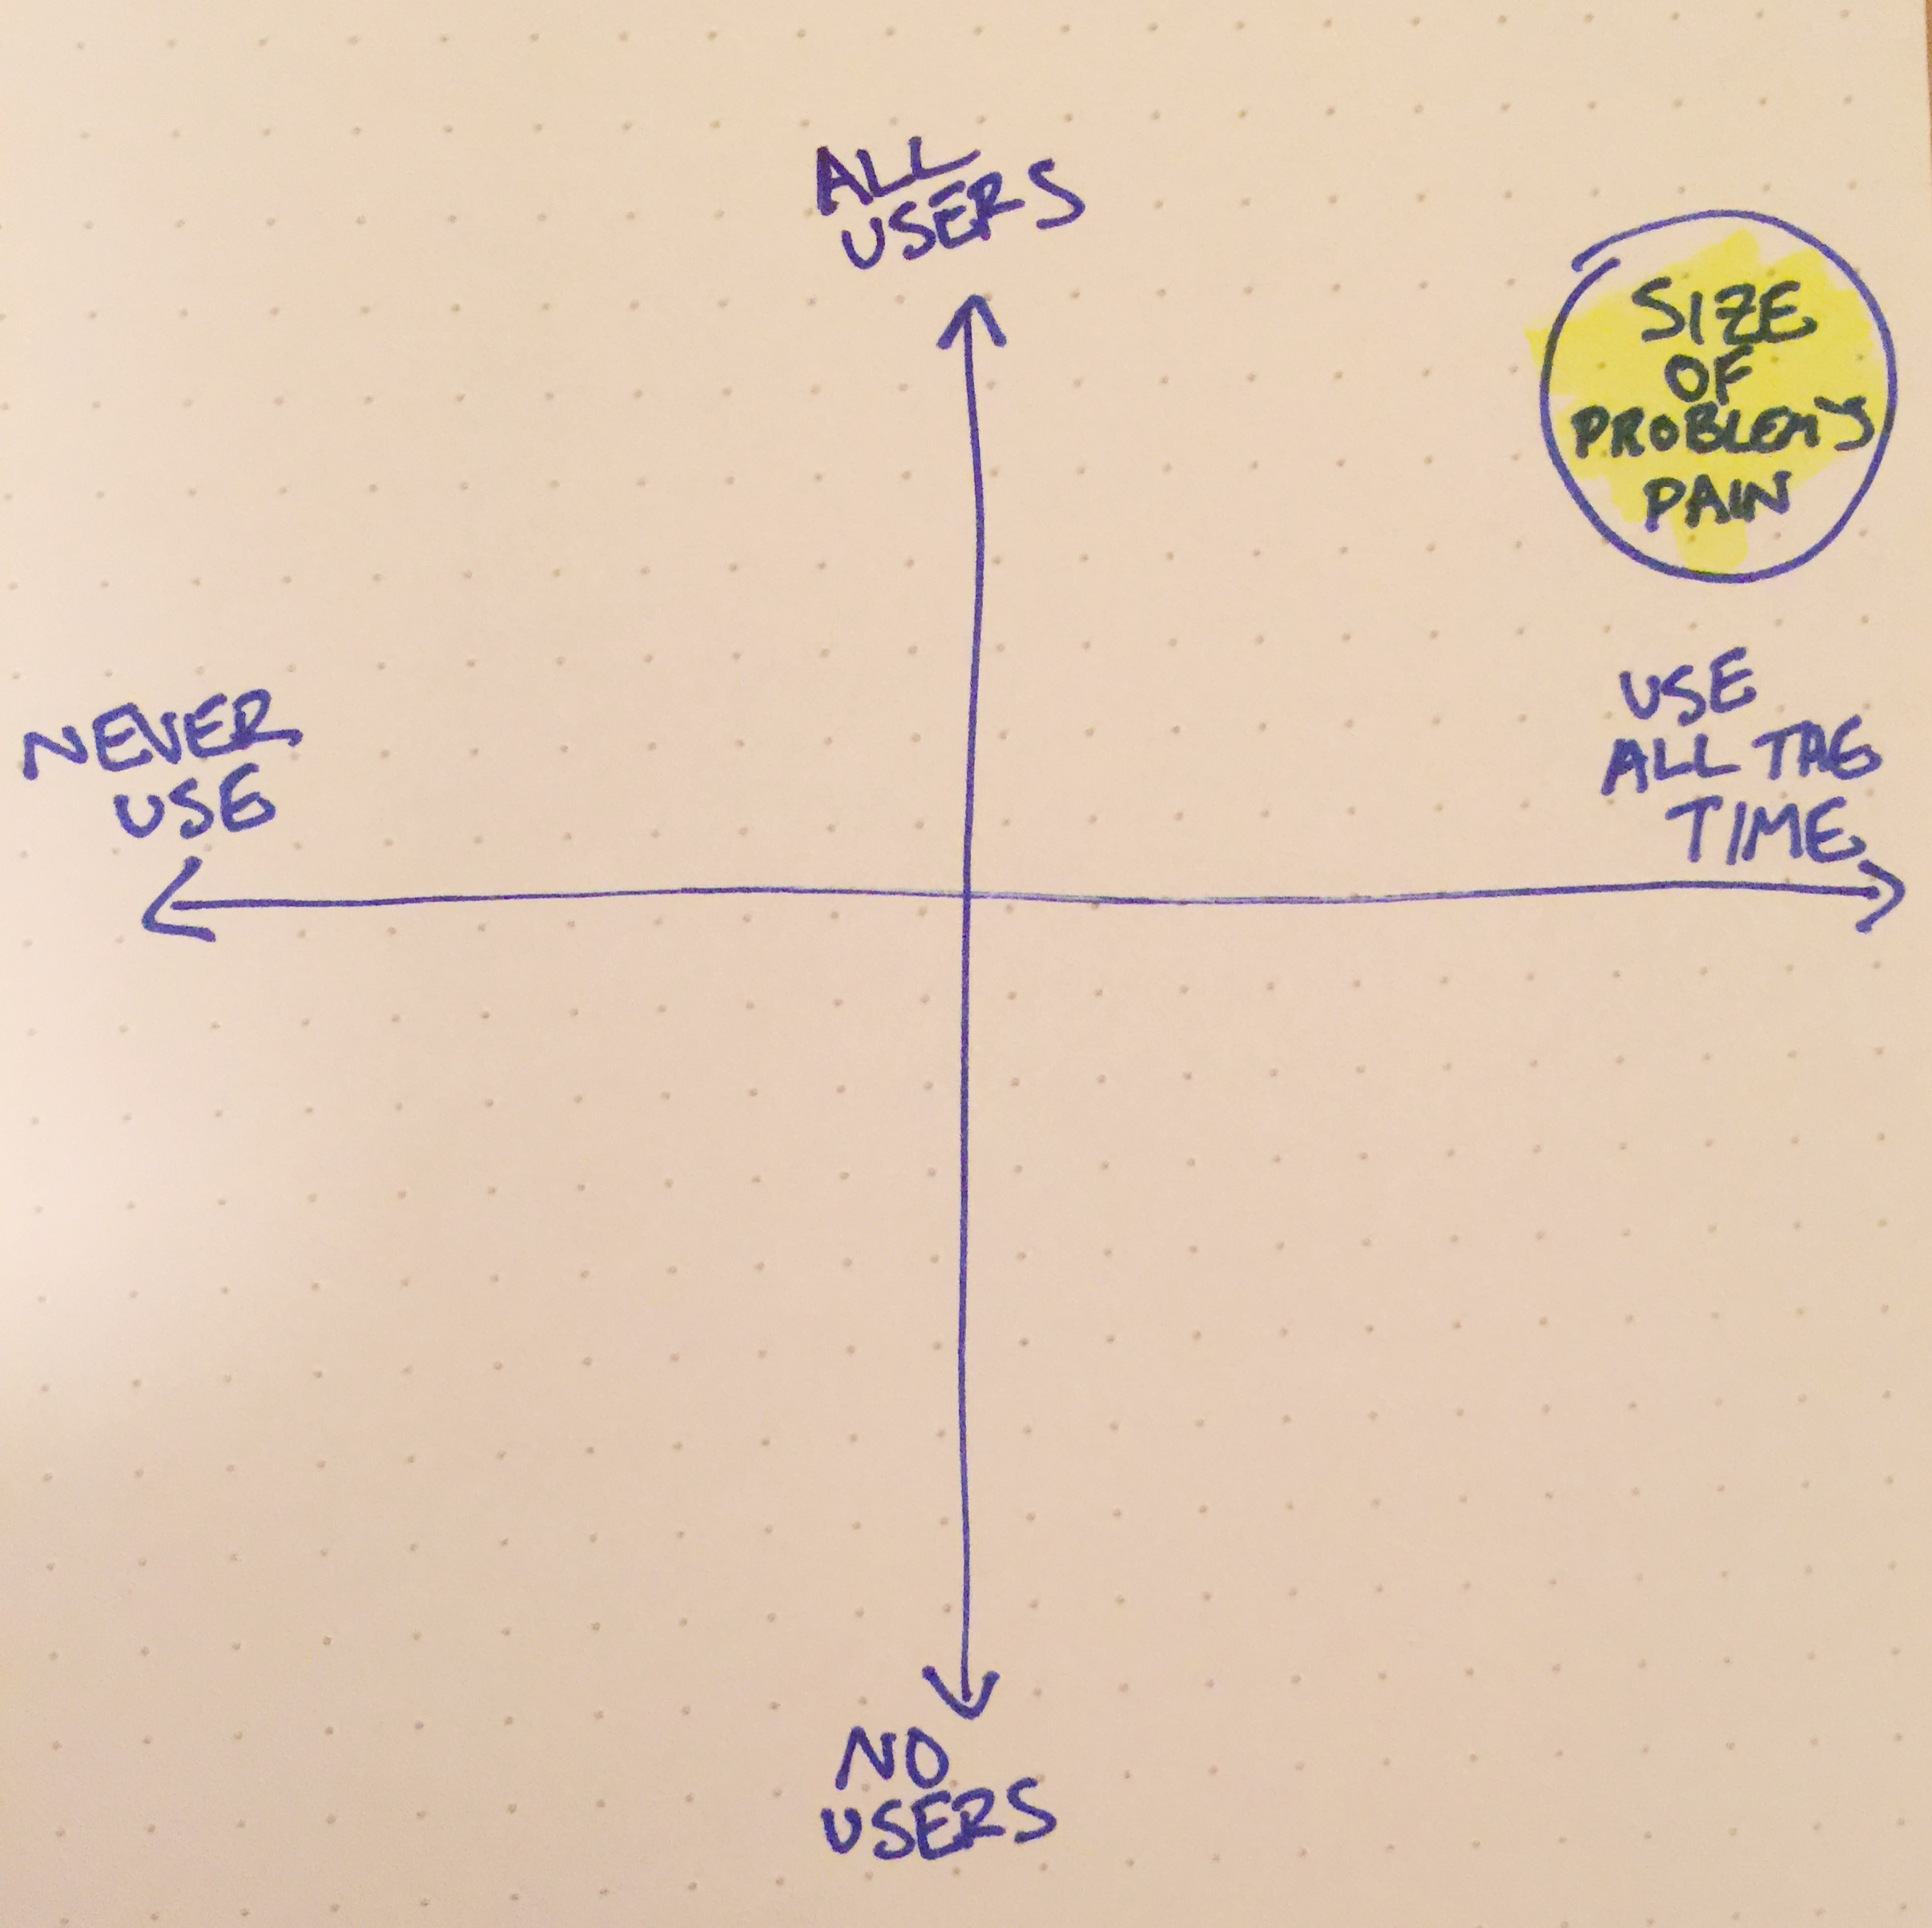 ALL
USERS
SIZE
OF
PROBLEM'S
PAIN
NEVER
USE
USE
ALL THE
TIME
NO
USERS